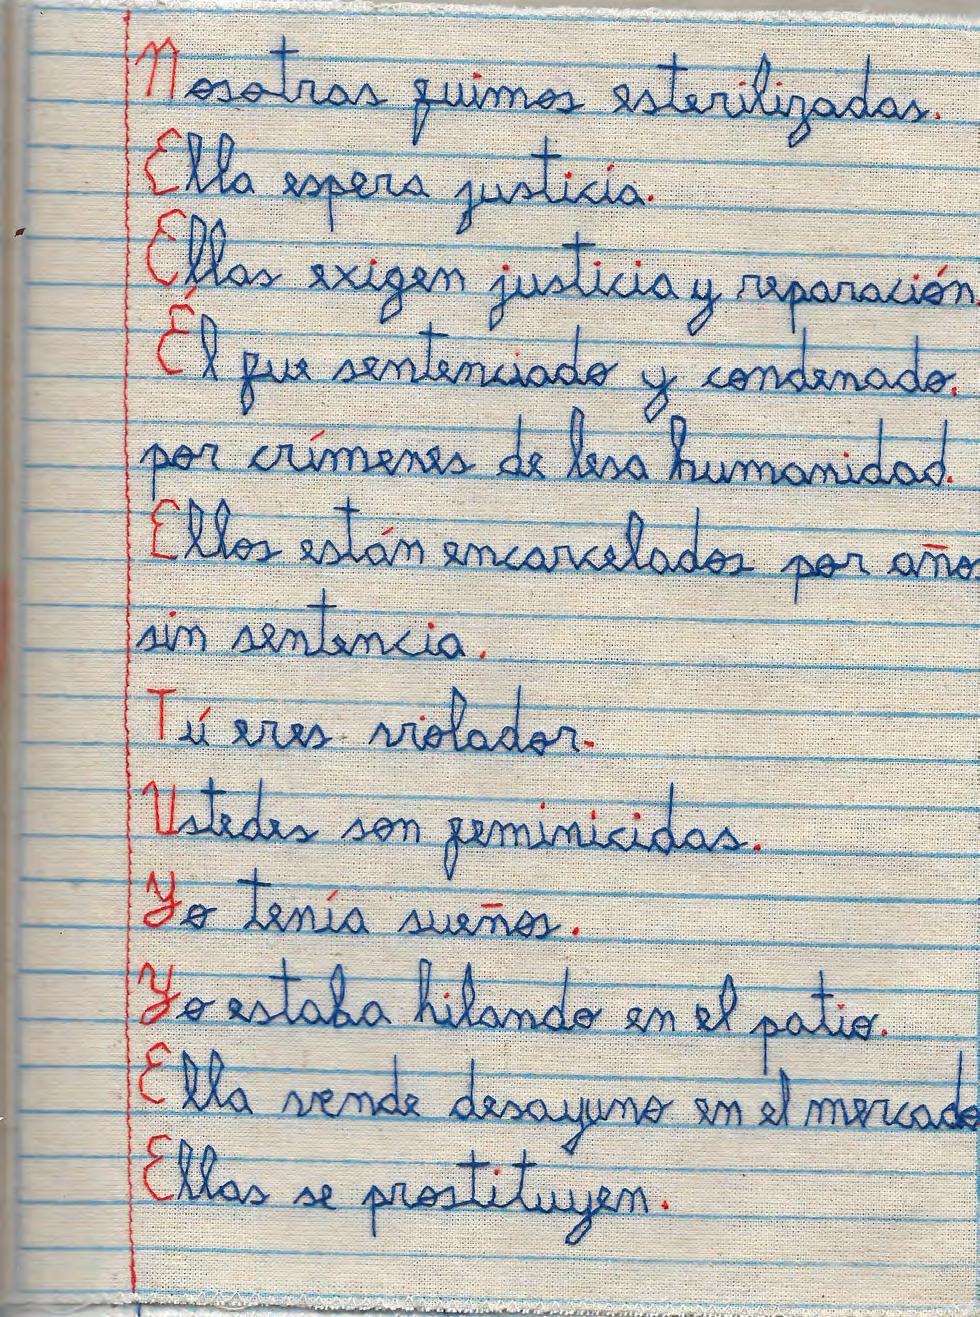 Nosotras fuimos esterilizadas.
Ella espera justicia.
Ellas exigen justicia y reparación.
Él fue sentenciado y condenado.
por crímenes de lesa humanidad.
Ellos están encarcelados por años
sin sentencia.
Tú eres violador.
Ustedes son feminicidas.
Yo tenía sueños.
Yo estaba hilando en el patio.
Ella vende desayuno en el mercado
Ellas se prostituyen.